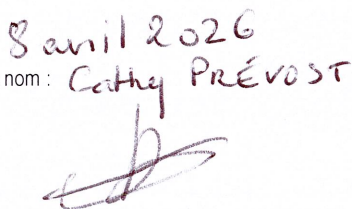 8 avril 2026
nom : Cathy PRÉVOST